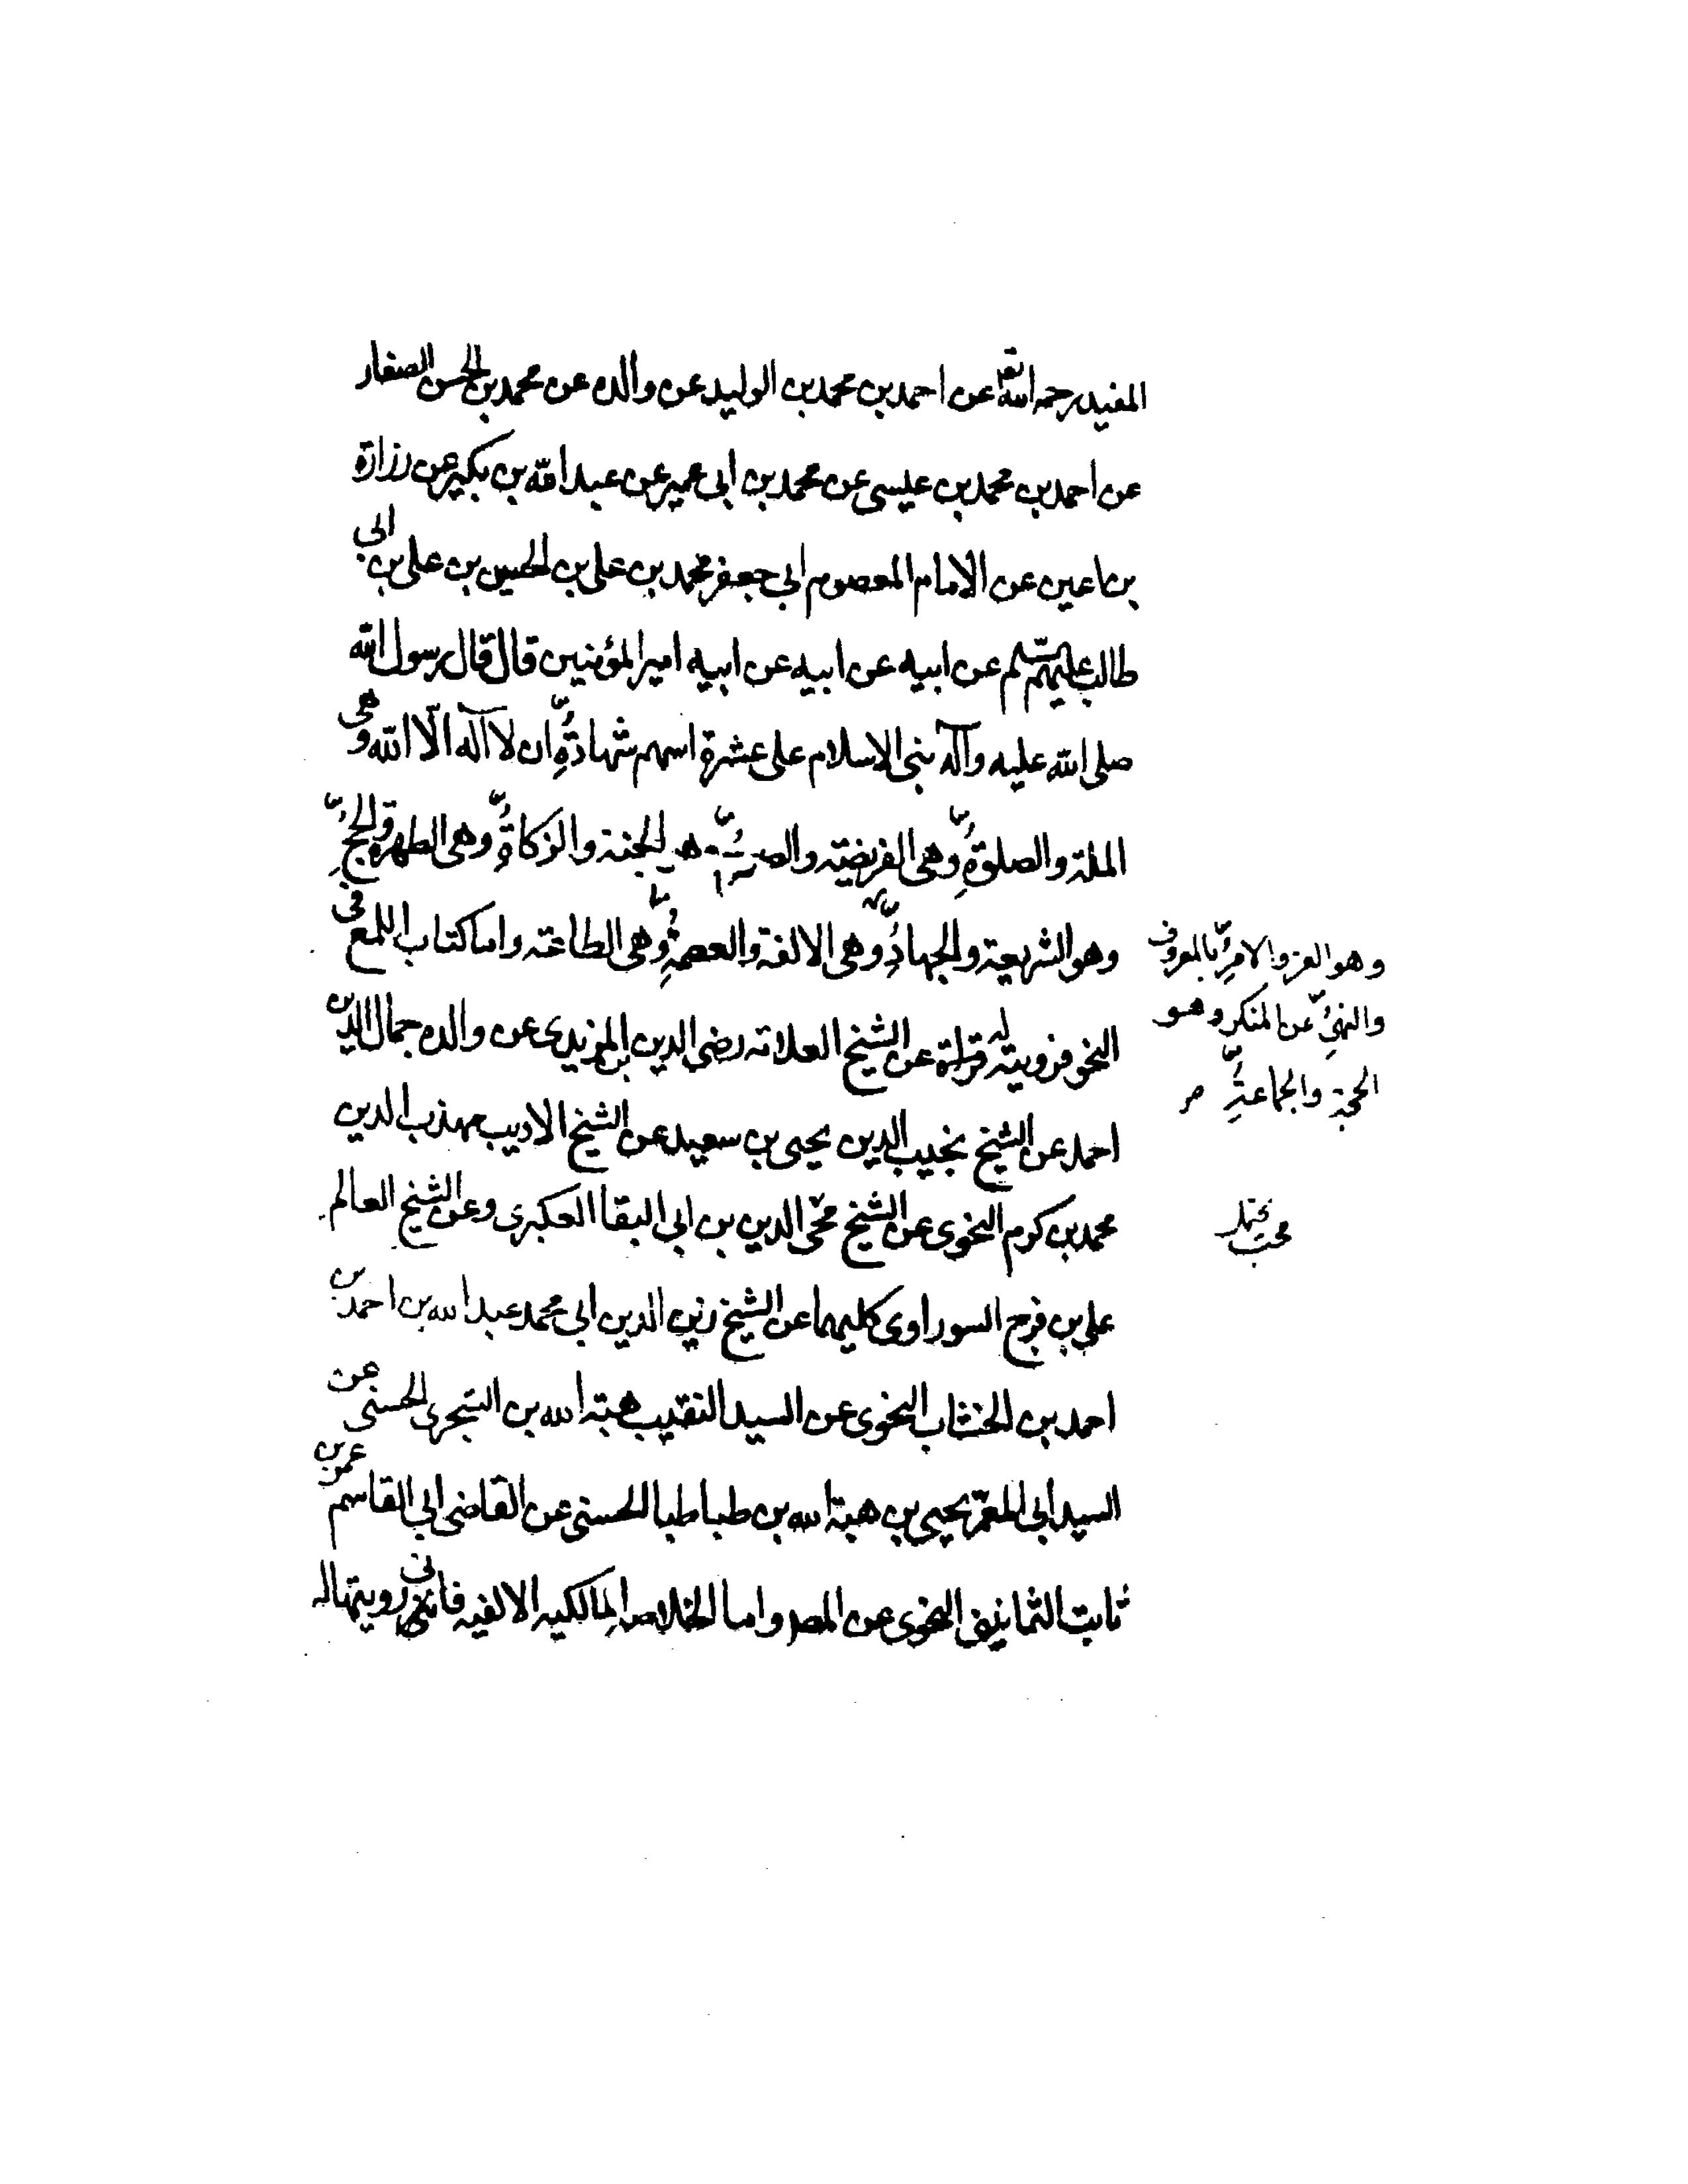 المفيد رحمه الله تعا عن احمد بن محمد بن الوليد عن والده عن محمد بن الحسن الصفار
عن احمد بن محمد بن عيسى عن محمد بن ابى عمير عن عبد الله بن بكير عن زرارة
بن اعين عن الامام المعصوم ابى جعفر محمد بن على بن الحسين بن على بن ابى
طالب عليهم عن ابيه عن ابيه عن ابيه امير المؤمنين قال قال رسول الله
صلى الله عليه وآله بنى الاسلام على عشرة اسهم شهادة ان لا آله الّا الله وهى
الملة والصلوة وهى الفريضة هى الجنة والزكاة وهى الطهرة والحج
وهو الشريعة والجهاد وهى الالفة والعصمة وهى الطاعة واما كتاب اللمع فى
النحو فرويته له قراءة عن الشيخ العلامة رضى الدين بن المزيدى عن والده جمال الدين
احمد عن الشيخ نجيب الدين يحيى بن سعيد عن الشيخ الاديب مهذب الدين
محمد بن كرم النحوى عن الشيخ محى الدين بن ابى البقا العكبرى وعن الشيخ العالم
على بن فرج السوراوى كليهما عن الشيخ زين الدين ابى محمد عبد الله بن احمد بن
احمد بن الخشاب النحوى عن السيد النقيب هبة الله بن الشجرى الحسنى عن
السيد ابى المعمر يحيى بن هبة الله بن طباطبا الحسنى عن القاضى ابى القاسم عمر بن
ثابت الثمانينى النحوى عن المص واما الخلاصه المالكيه الالفيه فاننى رويتها له
وهو العز والامر بالمعروف
والنهى عن المنكر وهو
الحجة والجماعة